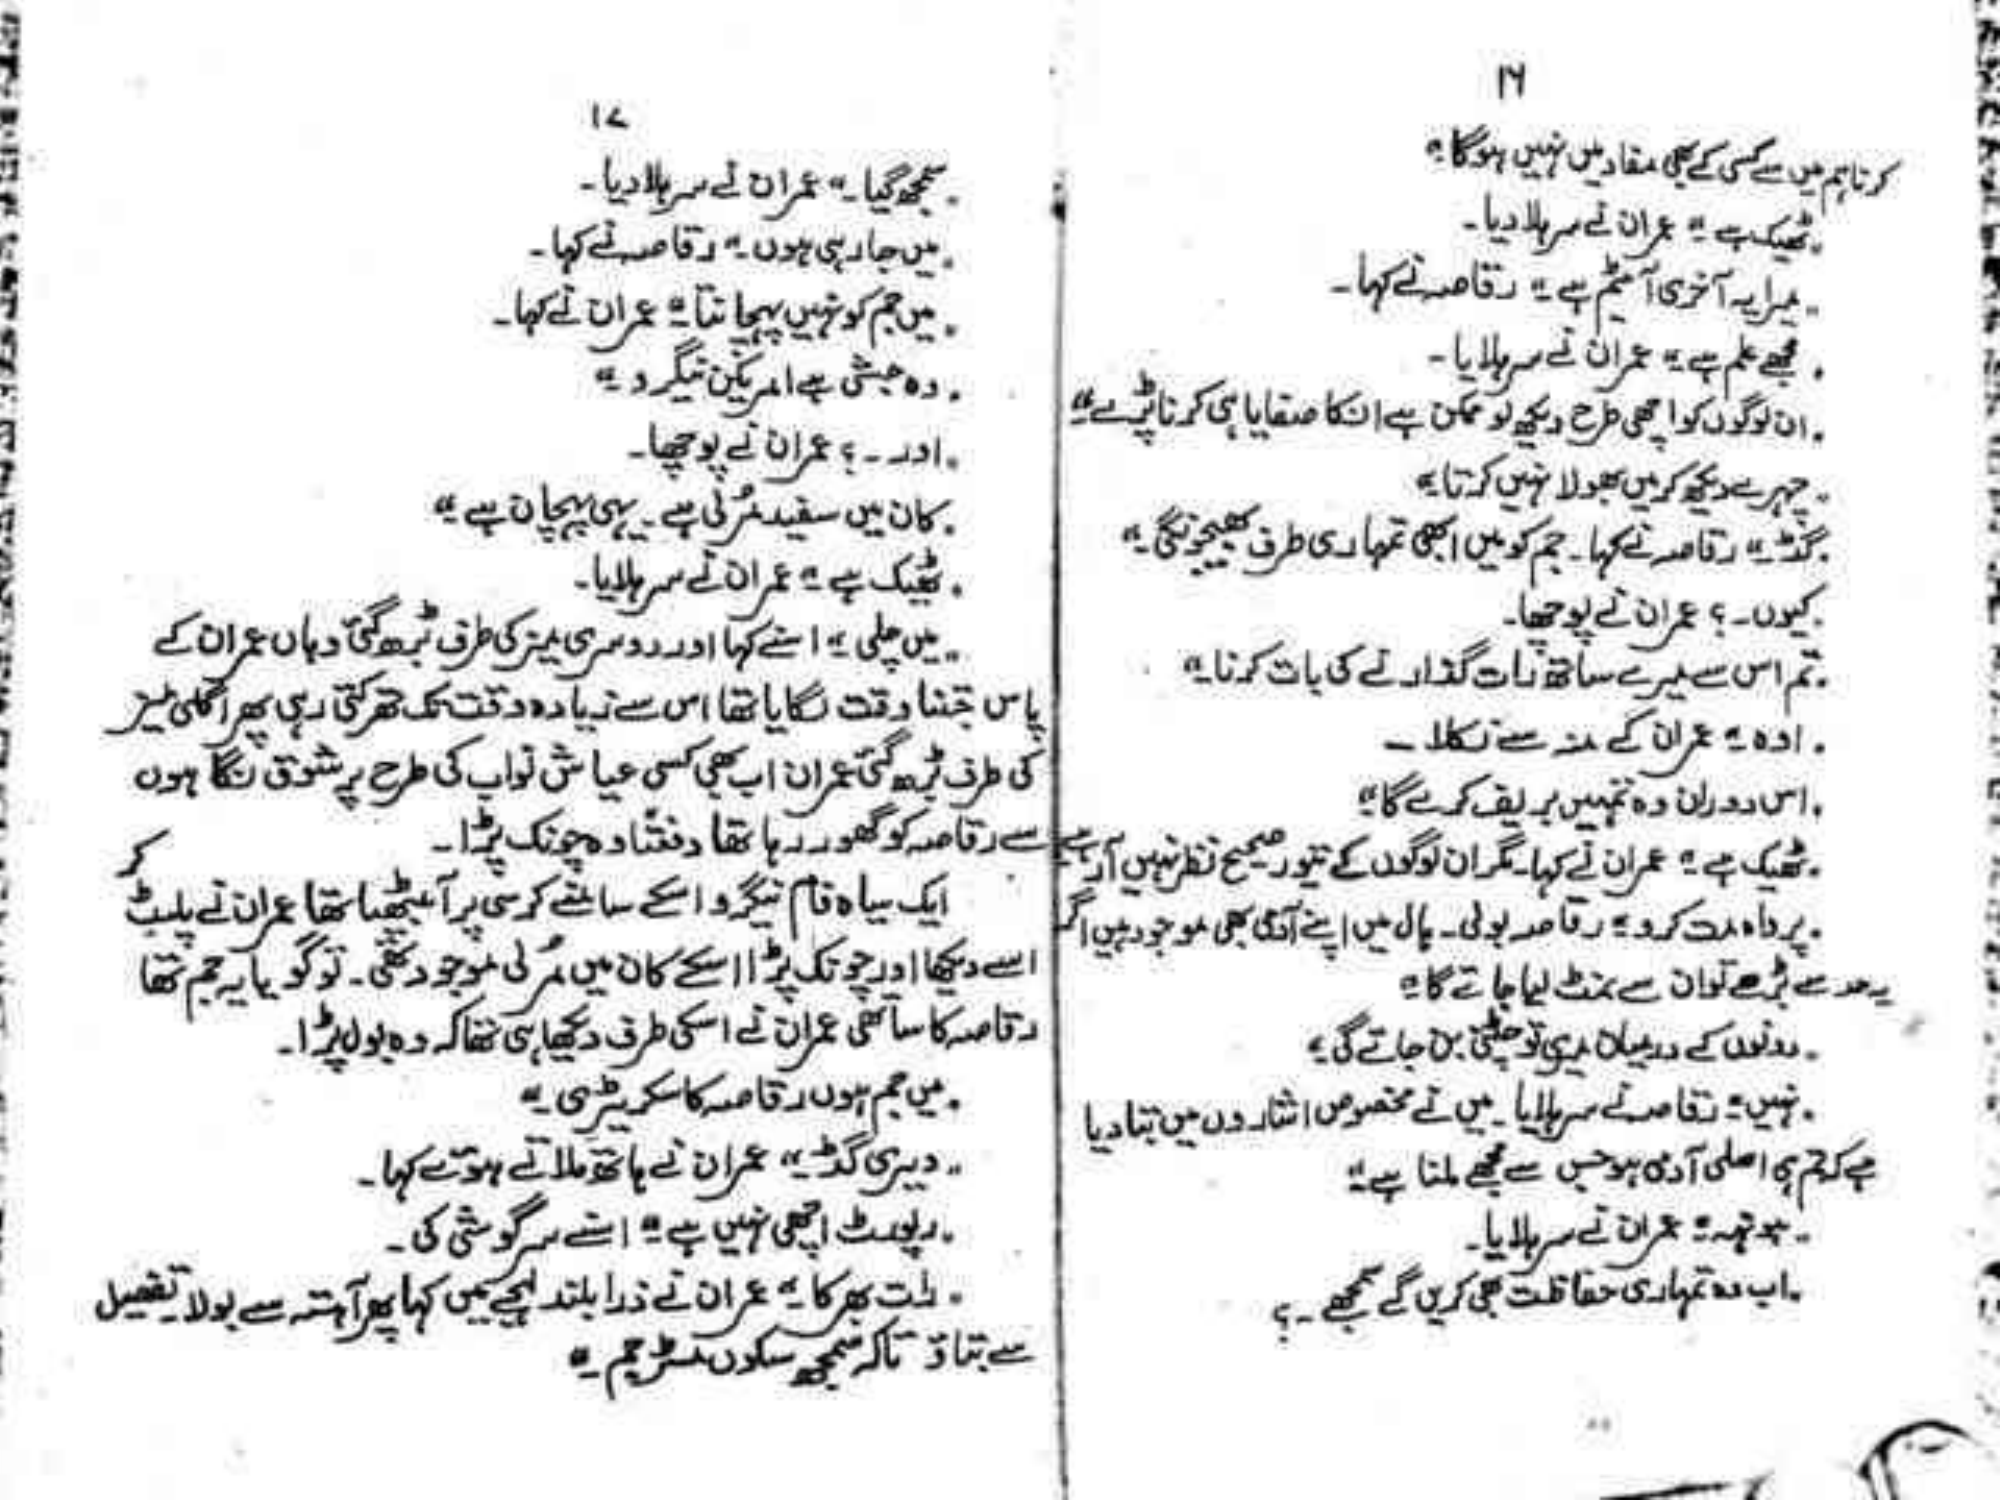 ۱۶
کرنا ہم میں سے کسی کے بھی مفاد میں نہیں ہوگا۔"
"ٹھیک ہے۔" عمران نے سر ہلا دیا۔
"میرا یہ آخری آئیٹم ہے۔" رقاصہ نے کہا۔
"مجھے علم ہے۔" عمران نے سر ہلایا۔
"ان لوگوں کو اچھی طرح دیکھ لو ممکن ہے انکا صفایا ہی کرنا پڑے۔"
"چہرے دیکھ کر میں بھولا نہیں کرتا۔"
"گڈ۔" رقاصہ نے کہا۔ جم کو میں ابھی تمہاری طرف بھیجونگی۔"
"کیوں۔؟ عمران نے پوچھا۔
"تم اس سے میرے ساتھ رات گذارنے کی بات کرنا۔"
"اوہ۔" عمران کے منہ سے نکلا۔
"اس دوران وہ تمہیں بریف کرے گا۔"
"ٹھیک ہے۔" عمران نے کہا۔ مگر ان لوگوں کے تیور صحیح نظر نہیں آرہے
"پرواہ مت کرو۔" رقاصہ بولی۔ ہال میں اپنے آدمی بھی موجود ہیں اگر
یہ حد سے بڑھے تو ان سے نمٹ لیا جائے گا۔"
"دونوں کے درمیان میری تو چٹنی بن جائے گی۔"
"نہیں۔" رقاصہ نے سر ہلایا۔ میں نے مخصوص اشاروں میں بتا دیا
ہے کہ تم ہی اصلی آدمی ہو جس سے مجھے ملنا ہے۔"
"ہونہہ۔" عمران نے سر ہلایا۔
"اب وہ تمہاری حفاظت بھی کریں گے سمجھے۔؟
۱۷
"سمجھ گیا۔" عمران نے سر ہلا دیا۔
"میں جا رہی ہوں۔" رقاصہ نے کہا۔
"میں جم کو نہیں پہچانتا۔" عمران نے کہا۔
"وہ حبشی ہے امریکن نیگرو۔"
"اور۔؟ عمران نے پوچھا۔
"کان میں سفید مُرکی ہے۔ یہی پہچان ہے۔"
"ٹھیک ہے۔" عمران نے سر ہلایا۔
"میں چلی۔" اسنے کہا اور دوسری میز کی طرف بڑھ گئی وہاں عمران کے
پاس جتنا وقت لگایا تھا اس سے زیادہ وقت تک تھرکتی رہی پھر اگلی میز
کی طرف بڑھ گئی عمران اب بھی کسی عیاش نواب کی طرح پر شوق نگاہوں
سے رقاصہ کو گھور رہا تھا دفعتاً وہ چونک پڑا۔
ایک سیاہ فام نیگرو اسکے سامنے کرسی پر آ بیٹھا تھا عمران نے پلٹ کر
اسے دیکھا اور چونک پڑا اسکے کان میں مُرکی موجود تھی۔ تو گویا یہ جم تھا
رقاصہ کا ساتھی عمران نے اسکی طرف دیکھا ہی تھا کہ وہ بول پڑا۔
"میں جم ہوں رقاصہ کا سکریٹری۔"
"ویری گڈ۔" عمران نے ہاتھ ملاتے ہوئے کہا۔
"رپورٹ اچھی نہیں ہے۔" اسنے سرگوشی کی۔
"رات بھر کا۔" عمران نے ذرا بلند لہجے میں کہا پھر آہستہ سے بولا تفصیل
سے بتاؤ تاکہ سمجھ سکوں مسٹر جم۔"